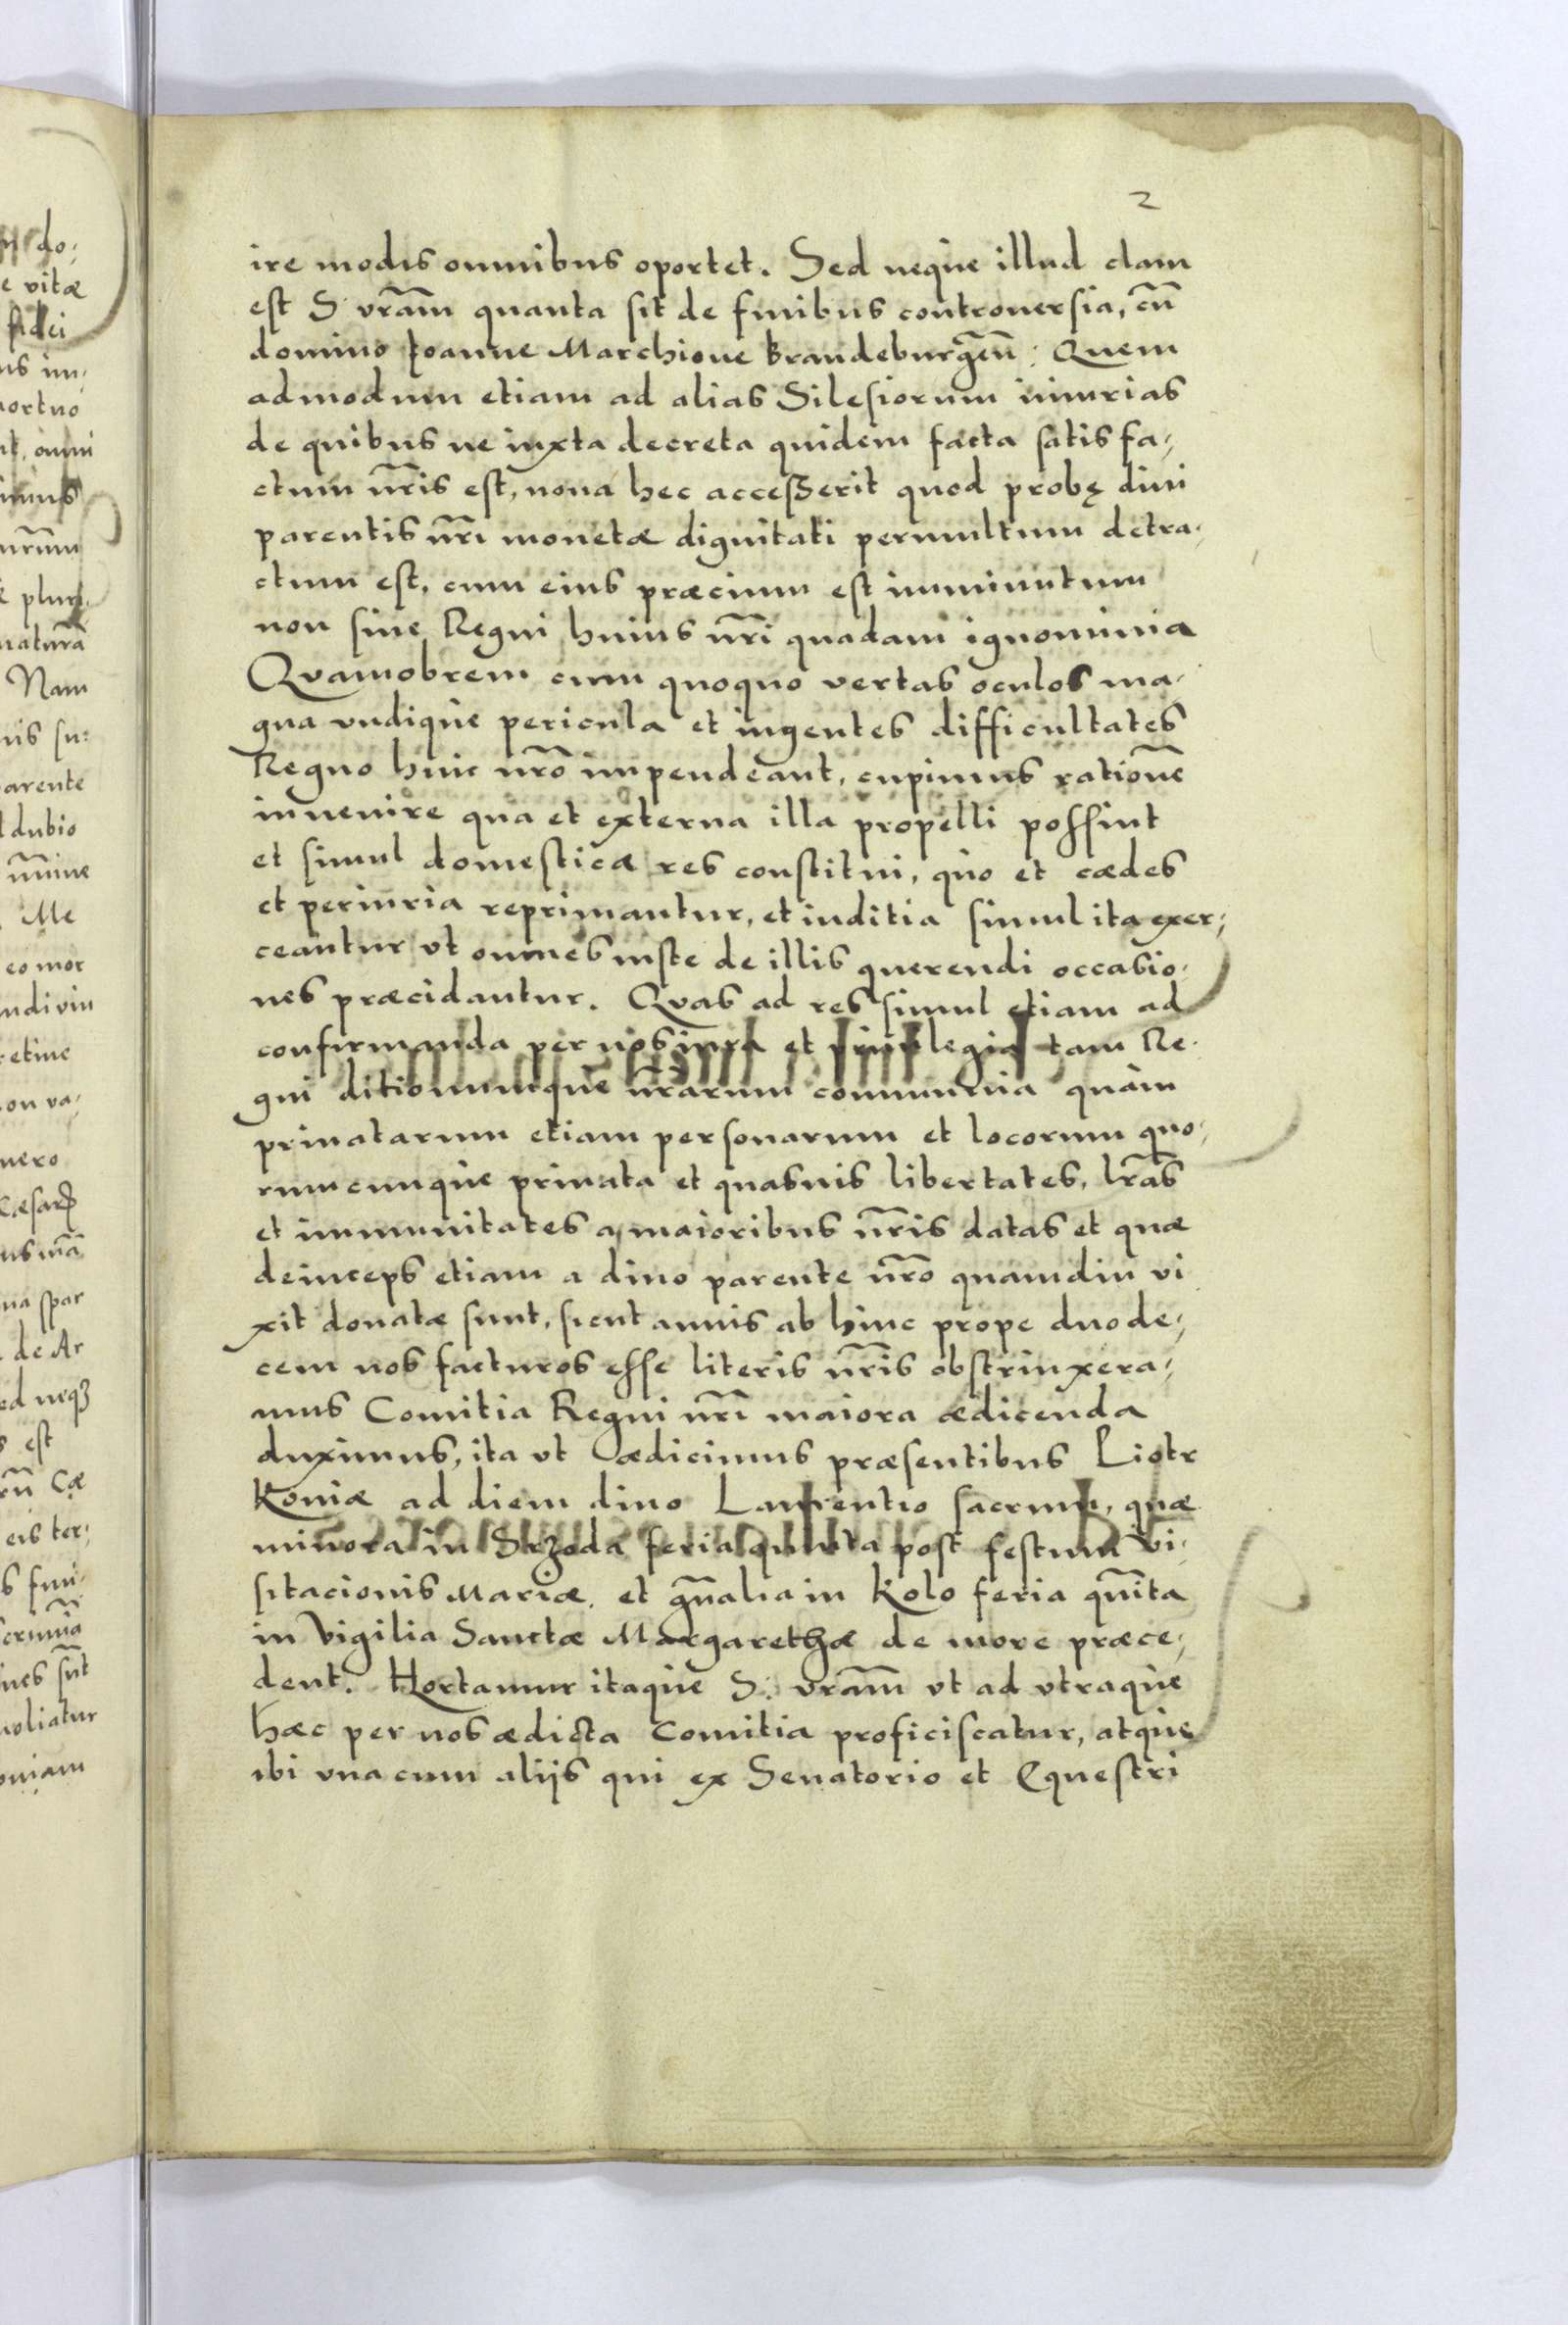 2
ire modis omnibus oportet. Sed neque illud clam
est S. vr̃am quanta sit de finibus controuersia, cũ
domino Ioanne Marchione Brandeburgeñ: Quem
admodum etiam ad alias Silesiorum iniurias
de quibus ne iuxta decreta quidem facta satis fa-
ctum nr̃is est, noua hec accesserit quod probę diui
parentis nr̃i monetæ dignitati permultum detra-
ctum est, cum eius præcium est imminutum
non sine Regni huius nr̃i quadam ignominia
Quamobrem cum quoquo vertas oculos ma-
gna vndique pericula et ingentes difficultates
Regno huic nr̃o impendeant, cupimus rationẽ
inuenire qua et externa illa propelli possint
et simul domesticæ res constitui, quo et cædes
et periuria reprimantur, et iuditia simul ita exer-
ceantur vt omnes iuste de illis querendi occasio-
nes præcidantur. Quas ad res simul etiam ad
confirmanda per nos iura et priuilegia tam Re-
gni ditionumque nr̃arum communia quàm
priuatarum etiam personarum et locorum quo-
rumcunque priuata et quasuis libertates, lr̃as
et immunitates a maioribus nr̃is datas et quæ
deinceps etiam a diuo parente nr̃o quamdiu vi
xit donatæ sunt, sicut annis ab hinc prope duode-
cem nos facturos esse literis nr̃is obstrinxera-
mus Comitia Regni nr̃i maiora ædicenda
duximus, ita vt ædicimus præsentibus Piotr
Koniæ ad diem diuo Laurentio sacrum, quæ
minora in Srzoda feria quinta post festum Vi-
sitacionis Mariæ, et gñalia in Kolo feria quĩta
in Vigilia Sanctæ Margarethæ de more præce-
dent. Hortamur itaque S. vr̃am vt ad vtraque
hæc per nos ædicta Comitia proficiscatur, atque
ibi vna cum aliis qui ex Senatorio et Equestri